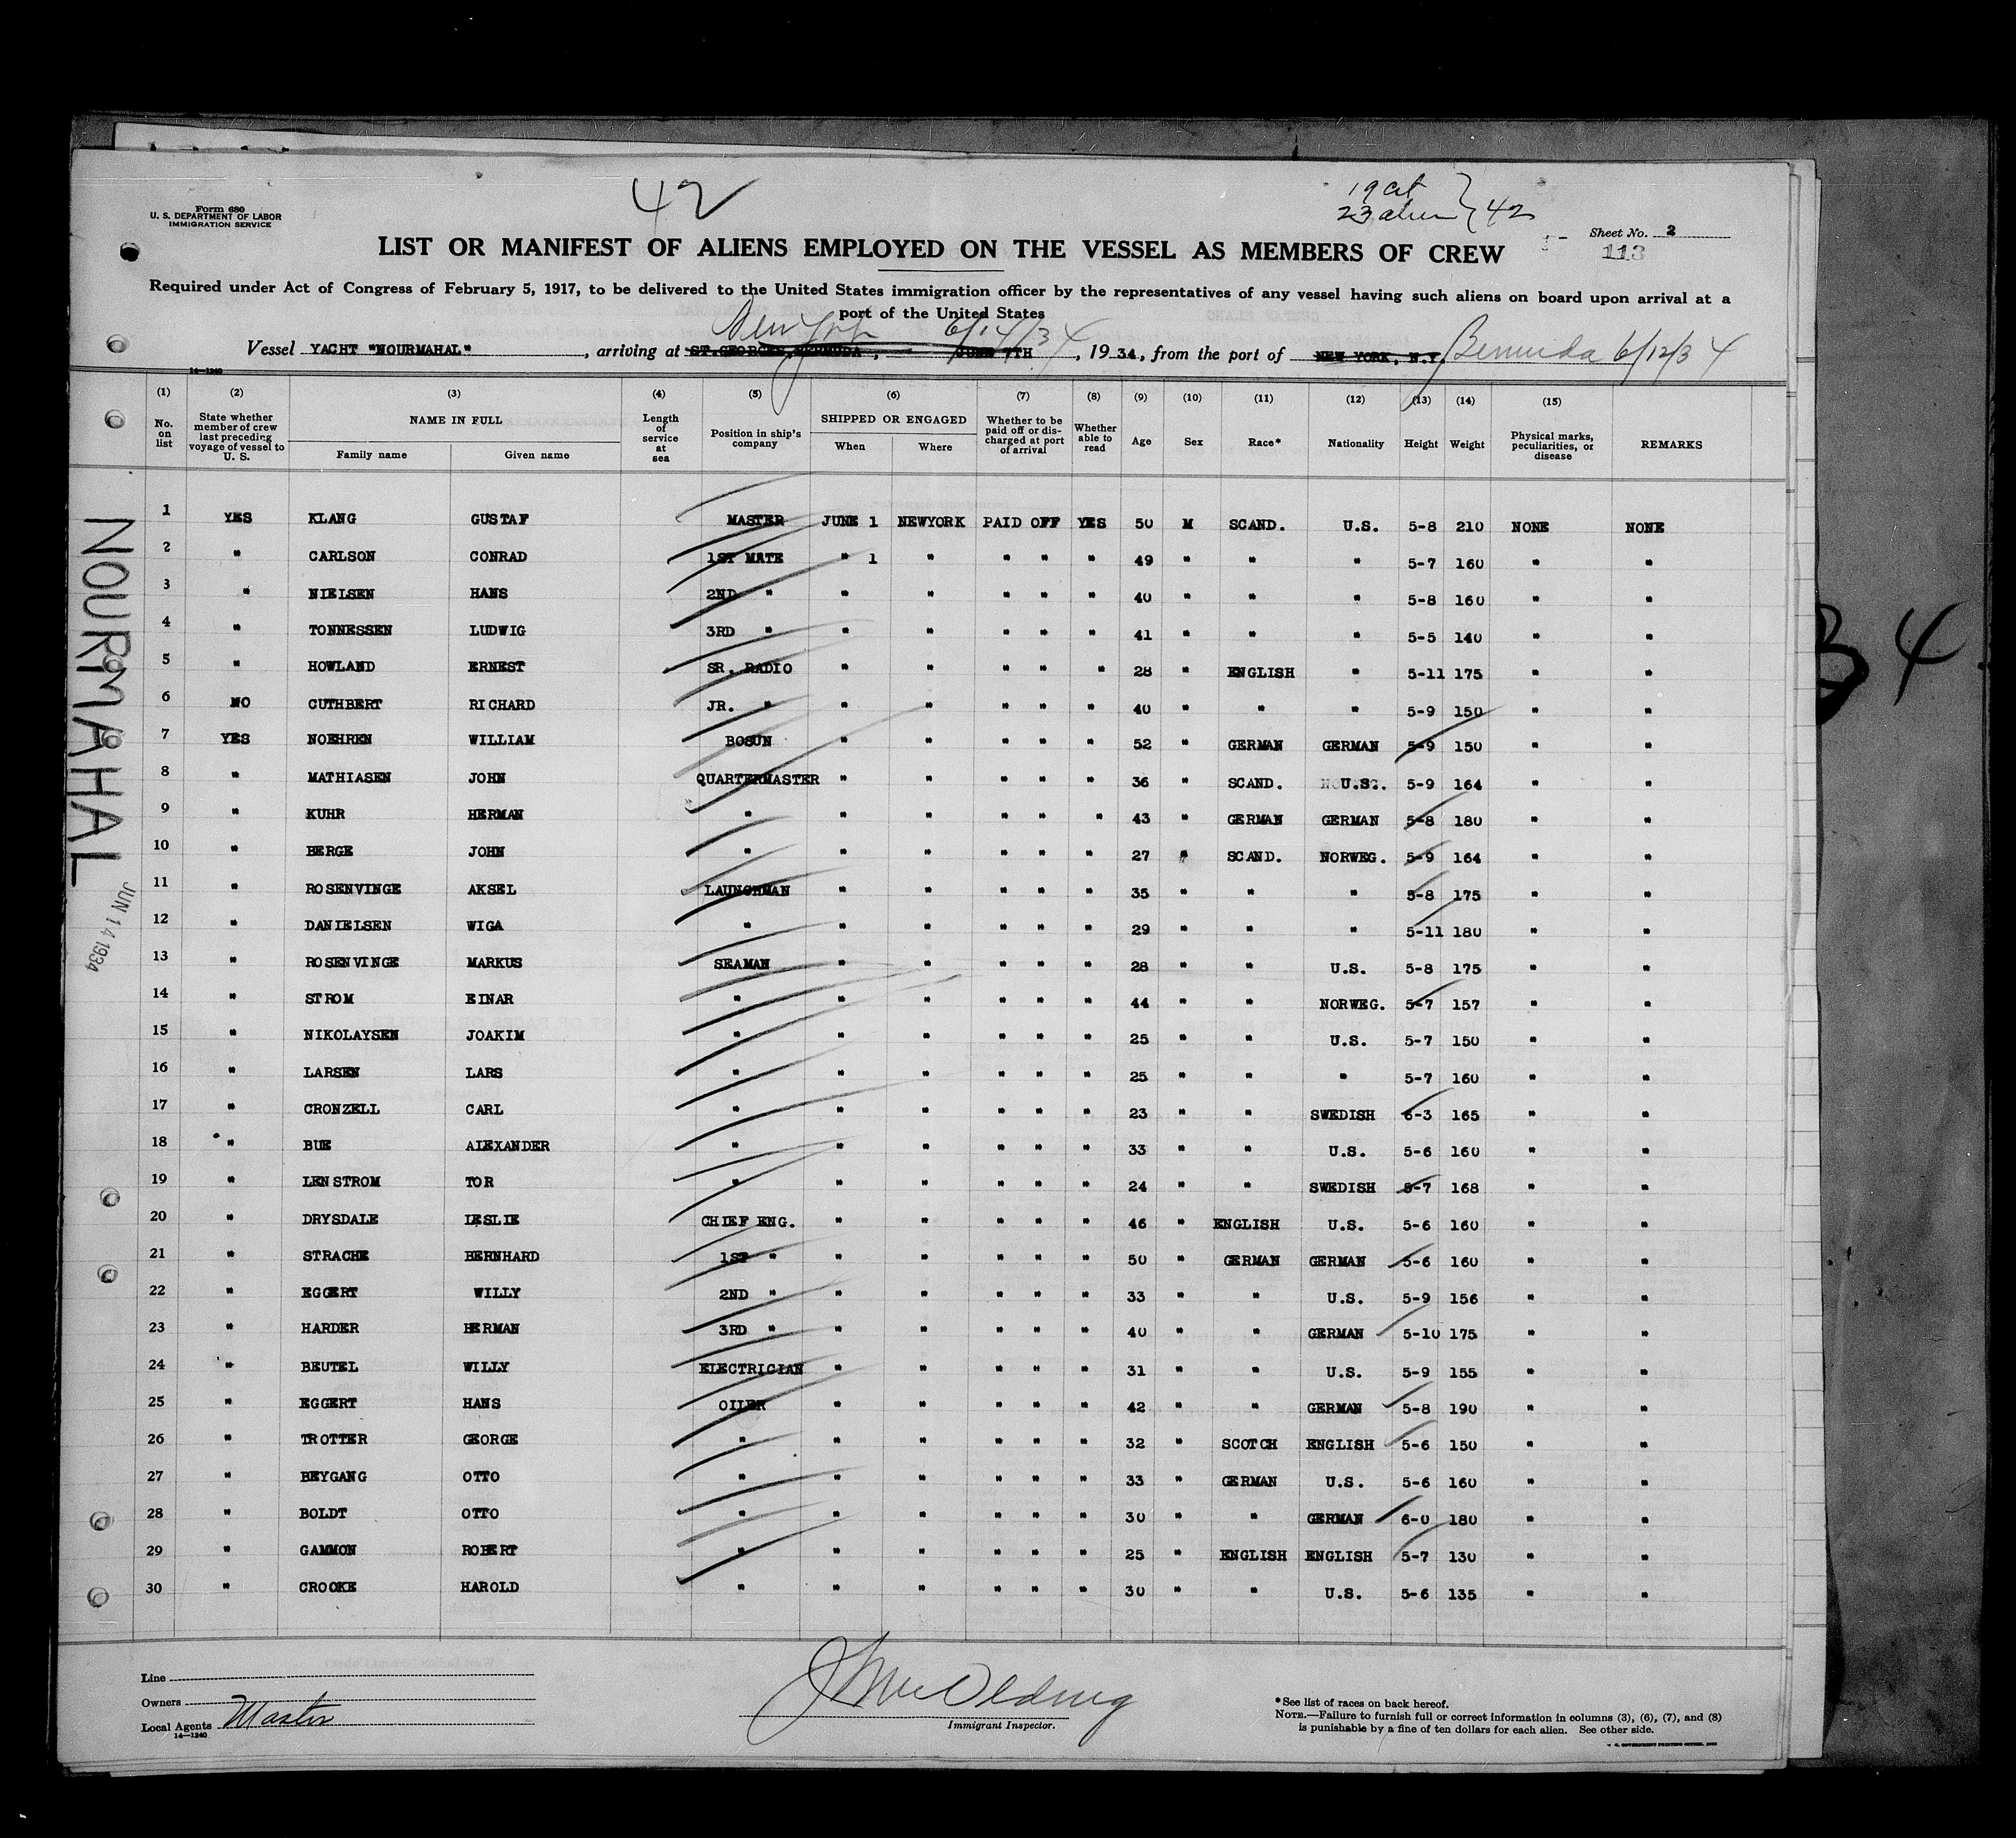 42
19 cit
23 alien } 42
Form 680
U. S. DEPARTMENT OF LABOR
IMMIGRATION SERVICE
Sheet No. 2
113
LIST OR MANIFEST OF ALIENS EMPLOYED ON THE VESSEL AS MEMBERS OF CREW
Required under Act of Congress of February 5, 1917, to be delivered to the United States immigration officer by the representatives of any vessel having such aliens on board upon arrival at a
port of the United States
New York 6/14/34
Vessel YACHT "NOURMAHAL" , arriving at ST.GEORGES,BERMUDA , JUNE 7TH , 1934, from the port of NEW YORK, N.Y. Bermuda 6/12/34
14—1240
(1) (2) (3) (4) (5) (6) (7) (8) (9) (10) (11) (12) (13) (14) (15)
No. on list State whether member of crew last preceding voyage of vessel to U. S. NAME IN FULL Family name Given name Length of service at sea Position in ship's company SHIPPED OR ENGAGED When Where Whether to be paid off or discharged at port of arrival Whether able to read Age Sex Race* Nationality Height Weight Physical marks, peculiarities, or disease REMARKS
1 YES KLANG GUSTAF MASTER JUNE 1 NEWYORK PAID OFF YES 50 M SCAND. U.S. 5-8 210 NONE NONE
2 " CARLSON CONRAD 1ST MATE " 1 " " " " 49 " " " 5-7 160 " "
3 " NIELSEN HANS 2ND " " " " " " 40 " " " 5-8 160 " "
4 " TONNESSEN LUDWIG 3RD " " " " " " 41 " " " 5-5 140 " "
5 " HOWLAND ERNEST SR. RADIO " " " " " 28 " ENGLISH " 5-11 175 " "
6 NO CUTHBERT RICHARD JR. " " " " " " 40 " " " 5-9 150 " "
7 YES NOEHREN WILLIAM BOSUN " " " " " 52 " GERMAN GERMAN 5-9 150 " "
8 " MATHIASEN JOHN QUARTERMASTER " " " " " 36 " SCAND. U.S. 5-9 164 " "
9 " KUHR HERMAN " " " " " " 43 " GERMAN GERMAN 5-8 180 " "
10 " BERGE JOHN " " " " " " 27 " SCAND. NORWEG. 5-9 164 " "
11 " ROSENVINGE AKSEL LAUNCHMAN " " " " " 35 " " " 5-8 175 " "
12 " DANIELSEN WIGA " " " " " " 29 " " " 5-11 180 " "
13 " ROSENVINGE MARKUS SEAMAN " " " " " 28 " " U.S. 5-8 175 " "
14 " STROM EINAR " " " " " " 44 " " NORWEG. 5-7 157 " "
15 " NIKOLAYSEN JOAKIM " " " " " " 25 " " U.S. 5-7 150 " "
16 " LARSEN LARS " " " " " " 25 " " " 5-7 160 " "
17 " CRONZELL CARL " " " " " " 23 " " SWEDISH 6-3 165 " "
18 " BUE ALEXANDER " " " " " " 33 " " U.S. 5-6 160 " "
19 " LENSTROM TOR " " " " " " 24 " " SWEDISH 5-7 168 " "
20 " DRYSDALE LESLIE CHIEF ENG. " " " " " 46 " ENGLISH U.S. 5-6 160 " "
21 " STRACHE BERNHARD 1ST " " " " " " 50 " GERMAN GERMAN 5-6 160 " "
22 " EGGERT WILLY 2ND " " " " " " 33 " " U.S. 5-9 156 " "
23 " HARDER HERMAN 3RD " " " " " " 40 " " GERMAN 5-10 175 " "
24 " BEUTEL WILLY ELECTRICIAN " " " " " 31 " " U.S. 5-9 155 " "
25 " EGGERT HANS OILER " " " " " 42 " " GERMAN 5-8 190 " "
26 " TROTTER GEORGE " " " " " " 32 " SCOTCH ENGLISH 5-6 150 " "
27 " BEYGANG OTTO " " " " " " 33 " GERMAN U.S. 5-6 160 " "
28 " BOLDT OTTO " " " " " " 30 " " GERMAN 6-0 180 " "
29 " GAMMON ROBERT " " " " " " 25 " ENGLISH ENGLISH 5-7 130 " "
30 " CROOKE HAROLD " " " " " " 30 " " U.S. 5-6 135 " "
NOURMAHAL
JUN 14 1934
34
Line
Owners
Local Agents Master
14—1240
Immigrant Inspector.
*See list of races on back hereof.
NOTE.—Failure to furnish full or correct information in columns (3), (6), (7), and (8)
is punishable by a fine of ten dollars for each alien. See other side.